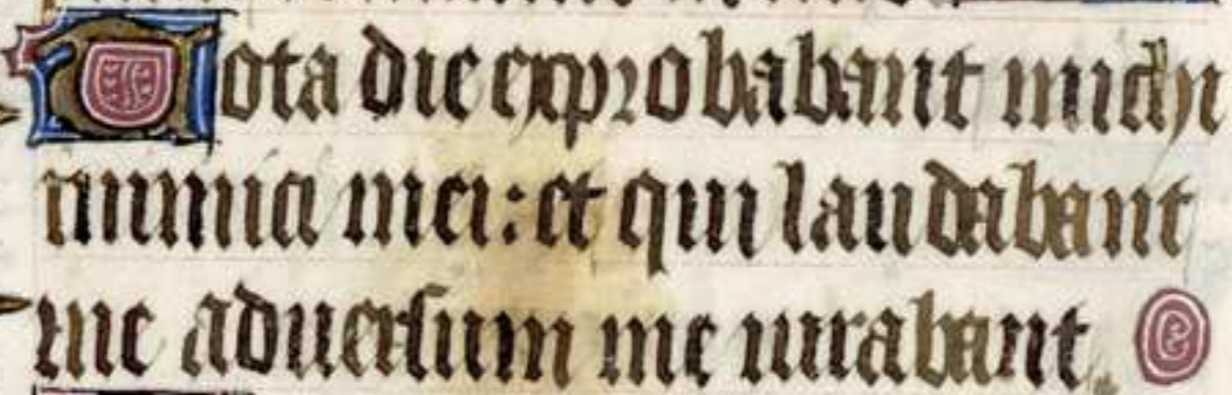 Tota die exprobabant michi
inimici mei: et qui laudabant
me adversum me iurabant